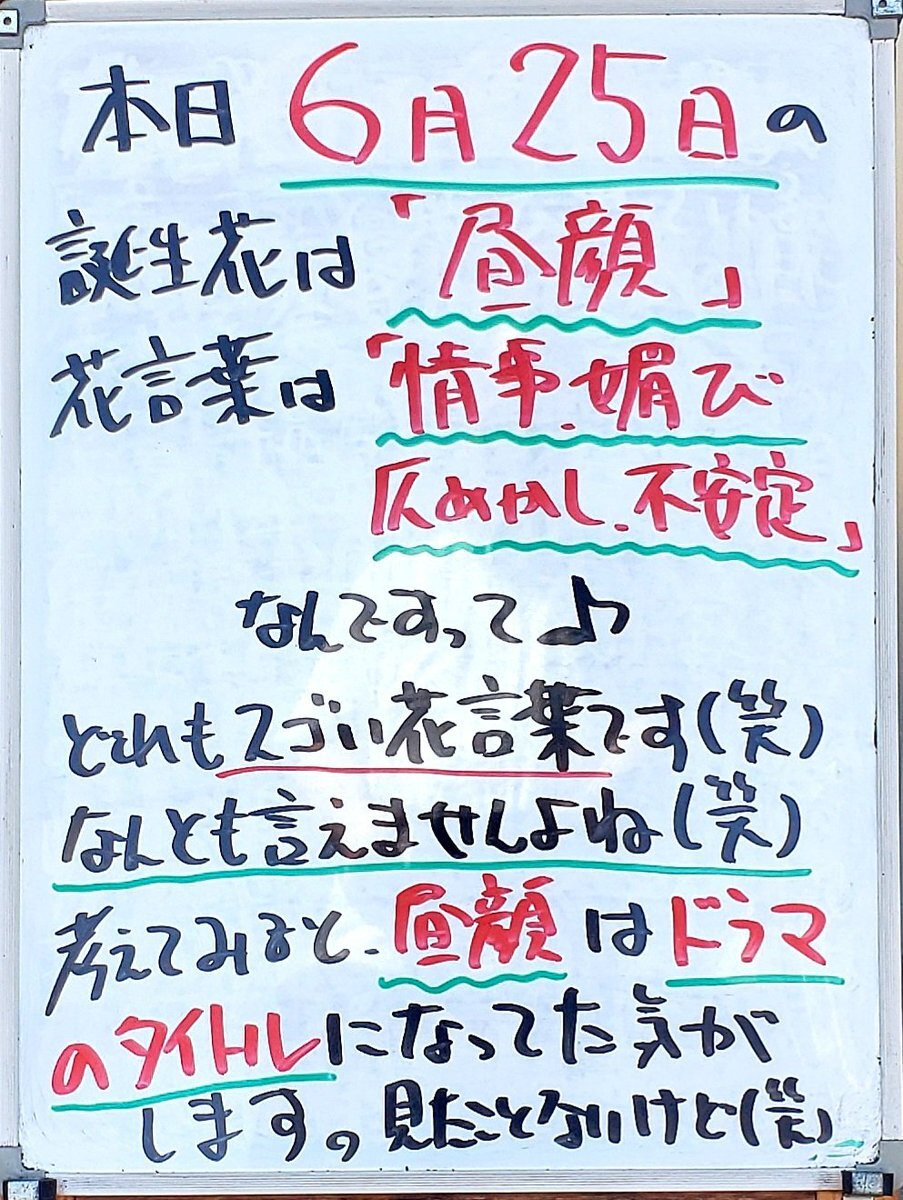 本日 6月25日の
誕生花は「昼顔」
花言葉は「情事、媚び
仄めかし、不安定」
なんですって♪
どれもスゴい花言葉です(笑)
なんとも言えませんよね(笑)
考えてみると、昼顔はドラマ
のタイトルになってた気が
します。見たことないけど(笑)